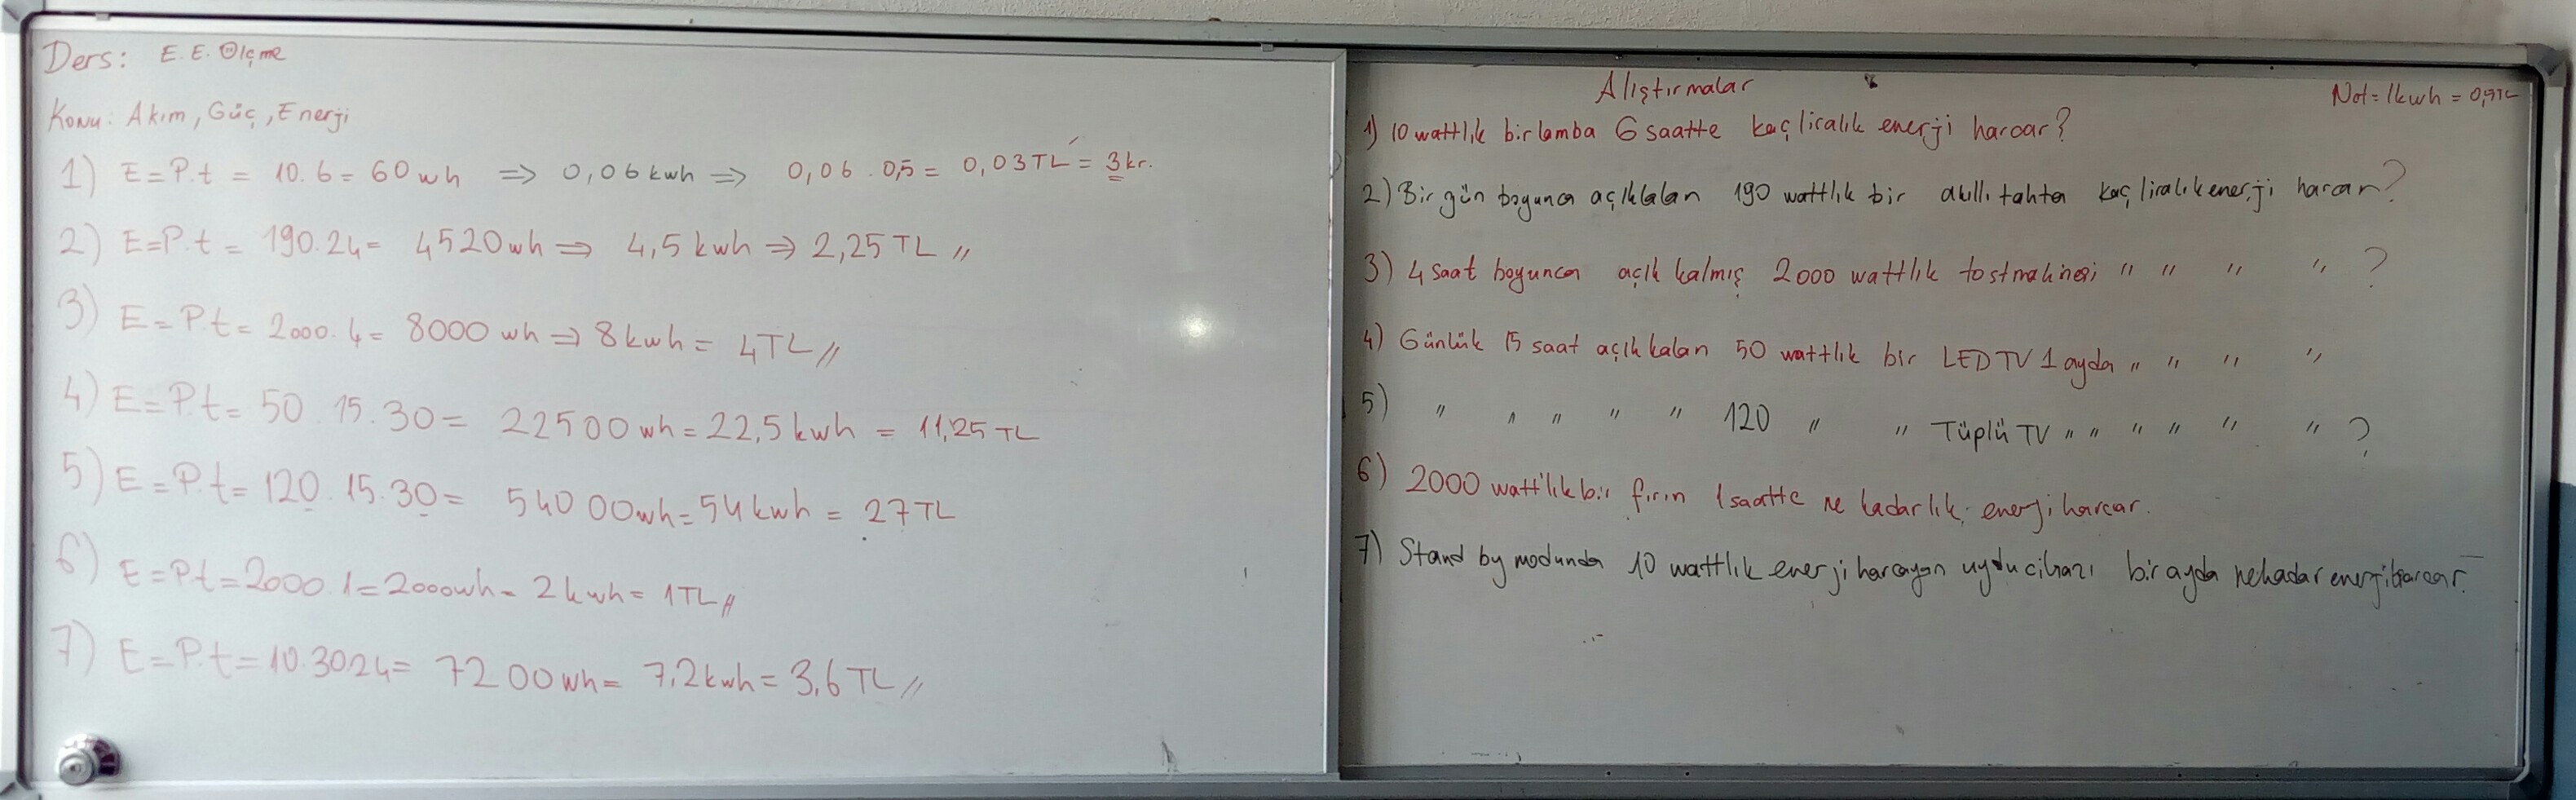 Ders: E.E. Ölçme
Konu: Akım, Güç, Enerji
1) E=P.t = 10.6 = 60 wh ⇒ 0,06 kwh ⇒ 0,06 . 0,5 = 0,03 TL = 3 kr.
2) E=P.t = 190.24 = 4520 wh ⇒ 4,5 kwh ⇒ 2,25 TL //
3) E=P.t = 2000.4 = 8000 wh ⇒ 8 kwh = 4 TL //
4) E=P.t = 50.15.30 = 22500 wh = 22,5 kwh = 11,25 TL
5) E=P.t = 120.15.30 = 54000 wh = 54 kwh = 27 TL
6) E=P.t = 2000.1 = 2000 wh = 2 kwh = 1 TL //
7) E=P.t = 10.30.24 = 7200 wh = 7,2 kwh = 3,6 TL //
Alıştırmalar
Not = 1 kwh =
1) 10 wattlık bir lamba 6 saatte kaç liralık enerji harcar?
2) Bir gün boyunca açık kalan 190 wattlık bir akıllı tahta kaç liralık enerji harcar?
3) 4 saat boyunca açık kalmış 2000 wattlık tost makinesi " " " " ?
4) Günlük 15 saat açık kalan 50 wattlık bir LED TV 1 ayda " " " "
5) " " " " " 120 " " Tüplü TV " " " " " " ?
6) 2000 watt'lık bir fırın 1 saatte ne kadarlık enerji harcar.
7) Stand by modunda 10 wattlık enerji harcayan uydu cihazı bir ayda ne kadar enerji harcar.